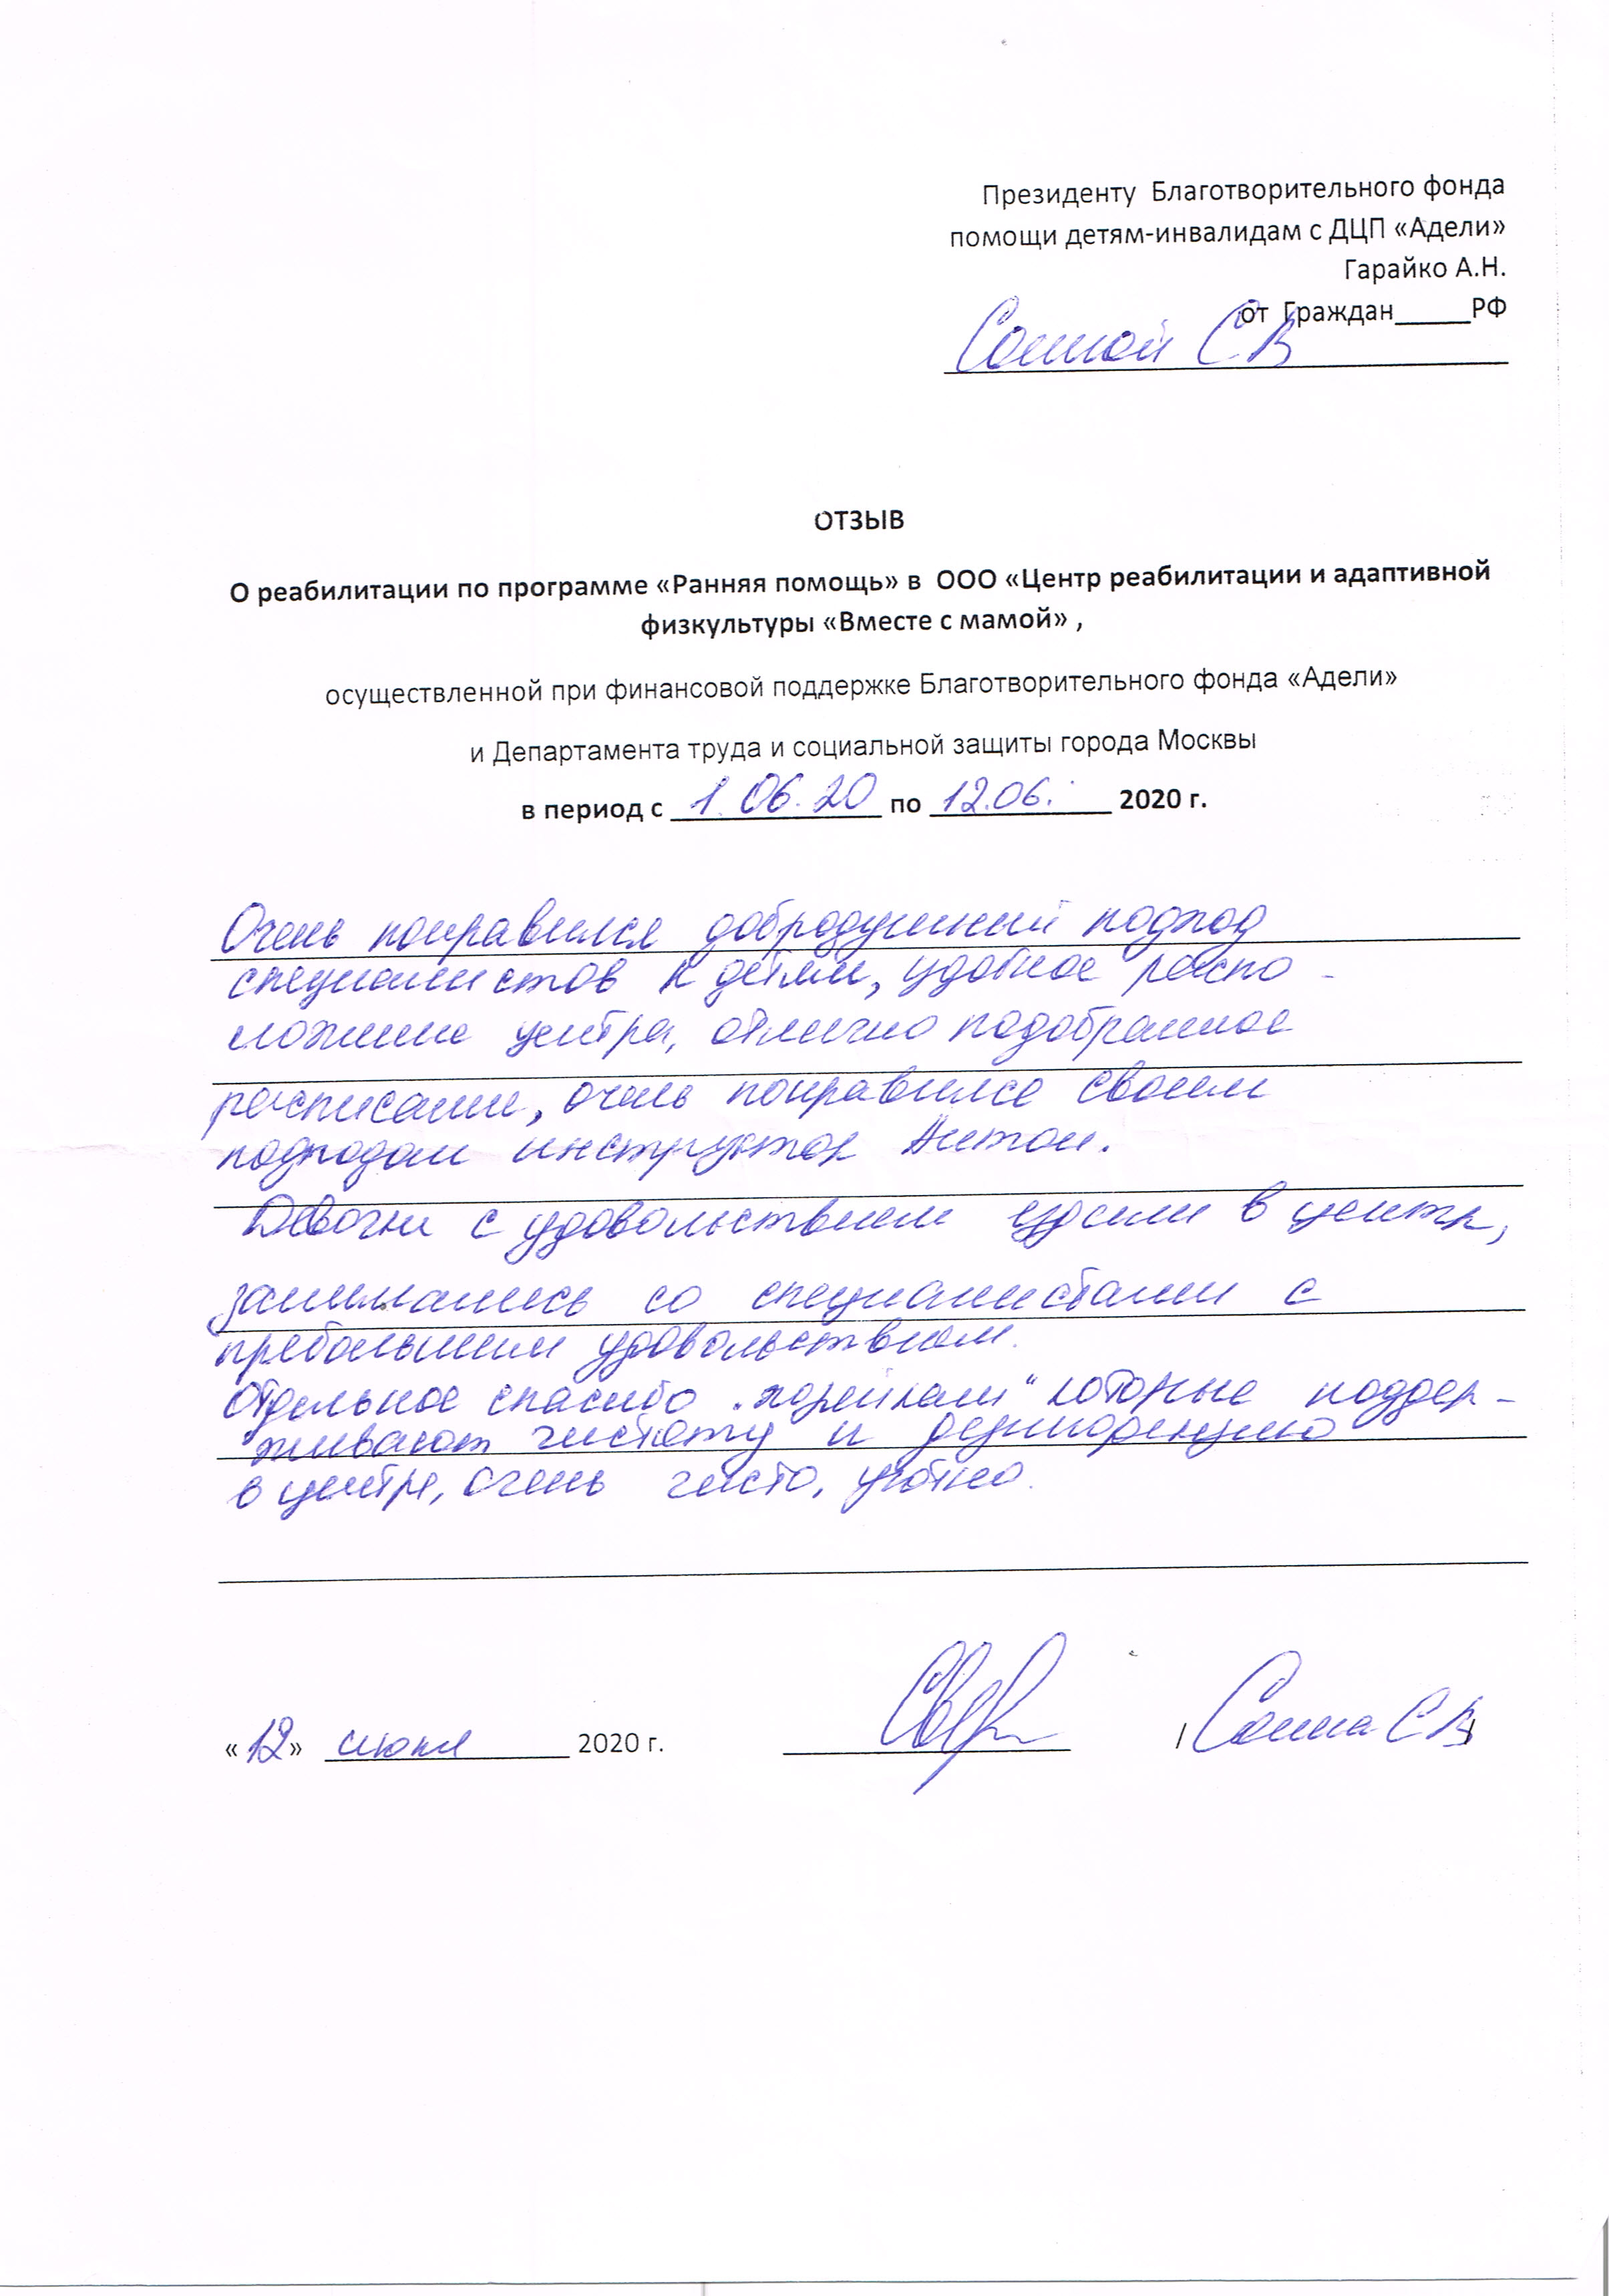 Президенту Благотворительного фонда
помощи детям-инвалидам с ДЦП «Адели»
Гарайко А.Н.
от Граждан______РФ
С В
ОТЗЫВ
О реабилитации по программе «Ранняя помощь» в ООО «Центр реабилитации и адаптивной
физкультуры «Вместе с мамой» ,
осуществленной при финансовой поддержке Благотворительного фонда «Адели»
и Департамента труда и социальной защиты города Москвы
в период с 1.06.20 по 12.06. 2020 г.
Очень понравился добродушный подход
специалистов к детям, удобное распо-
ложение центра, отлично подобранное
расписание, очень понравился своим
подходом инструктор Антон.
Девочки с удовольствием ездили в центр,
занимались со специалистами с
пребольшим удовольствием.
Отдельное спасибо „ " которые поддер-
живают чистоту и дезинфекцию
в центре, очень чисто, уютно.
«12» июня 2020 г. / С В /